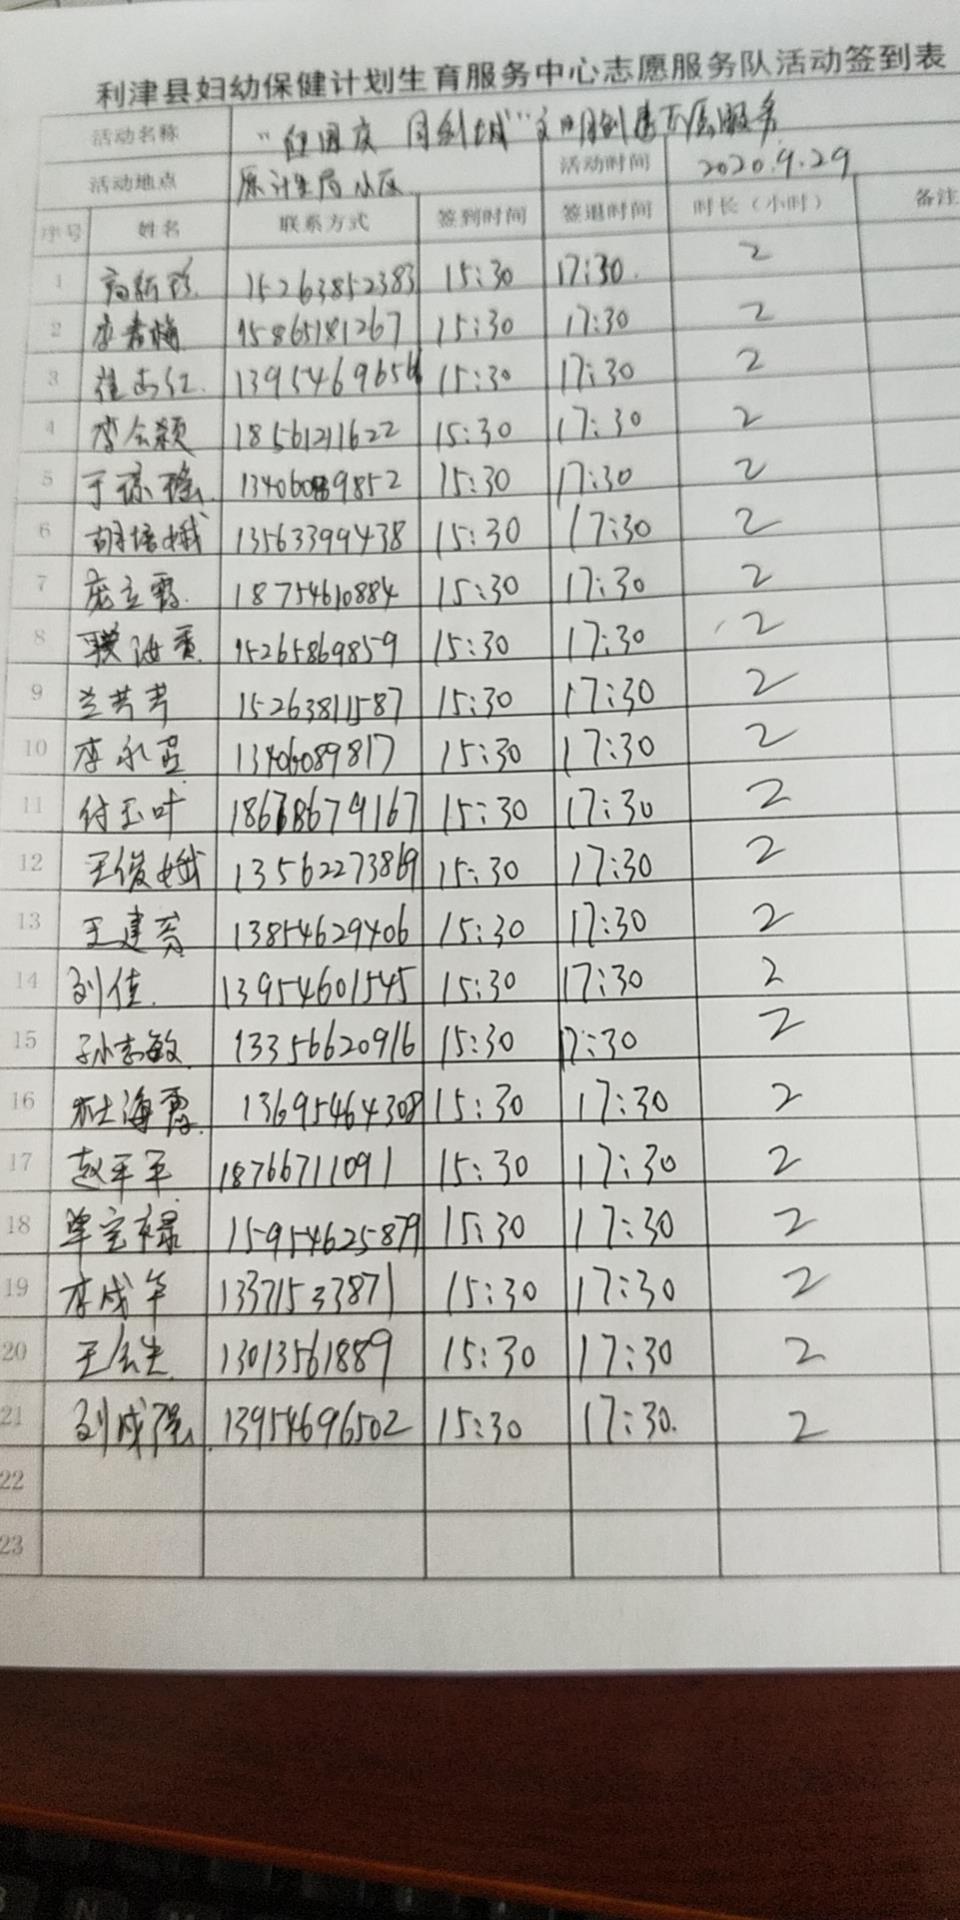 利津县妇幼保健计划生育服务中心志愿服务队活动签到表
活动名称 "迎国庆 同创城"文明创建志愿服务
活动地点 原计生局小区 活动时间 2020.9.29
序号 姓名 联系方式 签到时间 签退时间 时长（小时） 备注
1 15263852383 15:30 17:30 2
2 李春梅 15865181267 15:30 17:30 2
3 1395469656 15:30 17:30 2
4 李会颖 18561211622 15:30 17:30 2
5 于琼瑶 13406089852 15:30 17:30 2
6 胡培娥 13563399438 15:30 17:30 2
7 庞立霞 18754610884 15:30 17:30 2
8 15265869859 15:30 17:30 2
9 兰芳芳 15263811587 15:30 17:30 2
10 李永 13406089817 15:30 17:30 2
11 付玉叶 18678679167 15:30 17:30 2
12 王俊娥 13562273869 15:30 17:30 2
13 王建芳 13854629406 15:30 17:30 2
14 刘佳 13954601545 15:30 17:30 2
15 孙志敏 13356620916 15:30 17:30 2
16 杜海霞 13695464308 15:30 17:30 2
17 赵平平 18766711091 15:30 17:30 2
18 单宝禄 15954625879 15:30 17:30 2
19 李成年 13371533871 15:30 17:30 2
20 王会生 13013561889 15:30 17:30 2
21 刘成强 13954696502 15:30 17:30 2
22
23